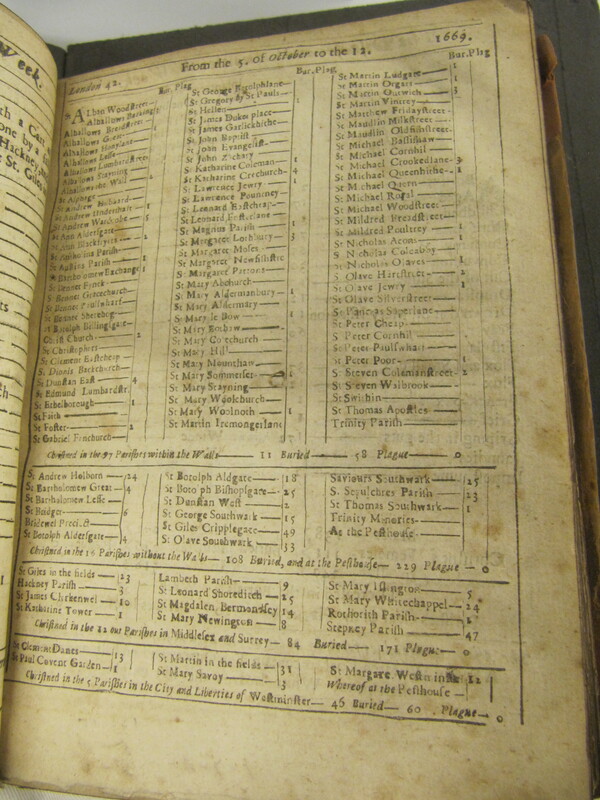 Week.
London 42. From the 5. of October to the 12. 1669.
Bur. Plag
Alban Woodstreet
Alhallows Barking
Alhallows Breadstreet
Alhallows Great
Alhallows Honylane
Alhallows Lesse
Alhallows Lumbardstreet
Alhallows Stayning
Alhallows the Wall 2
St Alphage
St Andrew Hubbard
St Andrew Undershaft
St Andrew Wardrobe 5
St Ann Aldersgate
St Ann Blackfryers 2
St Antholins Parish
St Austins Parish 1
St Bartholomew Exchange 1
St Bennet Fynck
S Bennet Gracechurch
St Bennet Paulswharf
St Bennet Sherehog
St Botolph Billingsgate
Christ Church 2
St Christophers
St Clement Eastcheap
S. Dionis Backchurch
St Dunstan East 4
St Edmund Lumbardstr.
St Ethelborough 1
St Faith
St Foster 2
St Gabriel Fenchurch
Bur. Plag
St George Botolphlane
St Gregory by St Pauls
St Hellen
St James Dukes place
St James Garlickhithe
St John Baptist
St John Evangelist
St John Zachary
St Katharine Coleman 1
St Katharine Creechurch 4
St Lawrence Jewry 1
St Lawrence Pountney
St Leonard Eastcheap
St Leonard Fosterlane
St Magnus Parish 1
St Margaret Lothbury 3
St Margaret Moses
St Margaret Newfishstr.
St Margaret Pattons
St Mary Abchurch
St Mary Aldermanbury 1
St Mary Aldermary
St Mary le Bow 1
St Mary Bothaw
St Mary Colechurch
St Mary Hill
St Mary Mounthaw
St Mary Sommerset
St Mary Stayning
St Mary Woolchurch
St Mary Woolnoth 1
St Martin Iremongerlane
Bur. Plag
St Martin Ludgate 1
St Martin Orgars 1
St Martin Outwich 3
St Martin Vintrey 1
St Matthew Fridaystreet
St Maudlin Milkstreet
St Maudlin Oldfishstreet
St Michael Bassishaw
St Michael Cornhil
St Michael Crookedlane 3
St Michael Queenhithe 1
St Michael Quern
St Michael Royal
St Michael Woodstreet
St Mildred Breadstreet
St Mildred Poultrey 1
St Nicholas Acons 1
S Nicholas Coleabby
St Nicholas Olaves 1
S Olave Hartstreet 2
St Olave Jewry 1
St Olave Silverstreet
St Pancras Soperlane
St Peter Cheap
S Peter Cornhil
St Peter Paulswharf
St Peter Poor 1
S Steven Colemanstreet 2
St Steven Walbrook
St Swithin
St Thomas Apostles
Trinity Parish
Christned in the 97 Parishes within the Walls 11 Buried 58 Plague 0
St Andrew Holborn 24
St Bartholomew Great 4
St Bartholomew Lesse
St Bridget 6
Bridewel Precinct
St Botolph Aldersgate 4
St Botolph Aldgate 18
St Botolph Bishopsgate 25
St Dunstan West 2
St George Southwark 15
St Giles Cripplegate 49
S Olave Southwark 33
Saviours Southwark 25
S. Sepulchres Parish 23
St Thomas Southwark 1
Trinity Minories
At the Pesthouse
Christned in the 16 Parishes without the Walls 108 Buried, and at the Pesthouse 229 Plague 0
St Giles in the fields 23
Hackney Parish 3
St James Clerkenwel 10
St Katharine Tower 1
Lambeth Parish 9
St Leonard Shoreditch 25
St Magdalen Bermondsey 14
St Mary Newington 8
St Mary Islington 5
St Mary Whitechappel 24
Rothorith Parish 2
Stepney Parish 47
Christned in the 12 out Parishes in Middlesex and Surrey 84 Buried 171 Plague 0
St Clement Danes 13
St Paul Covent Garden 1
St Martin in the fields 31
St Mary Savoy 3
St Margaret Westminster 12
Whereof at the Pesthouse
Christned in the 5 Parishes in the City and Liberties of Westminster 46 Buried 60 Plague 0